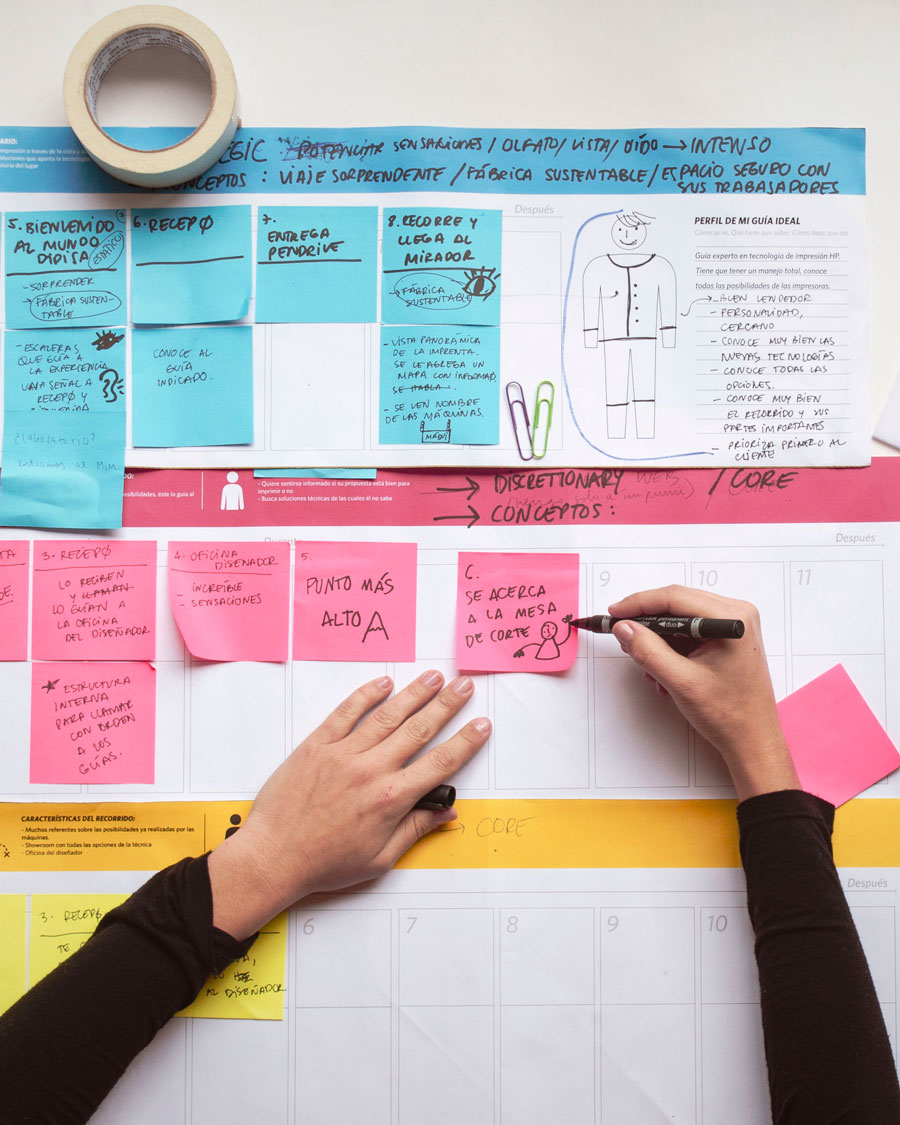 POTENCIAR SENSACIONES / OLFATO / VISTA / OÍDO → INTENSO
CONCEPTOS : VIAJE SORPRENDENTE / FÁBRICA SUSTENTABLE / ESPACIO SEGURO CON
SUS TRABAJADORES
5. BIENVENIDO
AL MUNDO
DIPISA
- SORPRENDER
- FÁBRICA SUSTEN-
TABLE
6. RECEPØ
7.
ENTREGA
PENDRIVE
8. RECORRE Y
LLEGA AL
MIRADOR
FÁBRICA
SUSTENTABLE
- ESCALERAS
QUE GUÍA A
LA EXPERIENCIA
UNA SEÑAL A
RECEPØ Y
CONOCE AL
GUÍA
INDICADO.
- VISTA PANORÁMICA
DE LA IMPRENTA.
SE LE AGREGA UN
MAPA CON
SE HABLA
- SE VEN NOMBRE
DE LAS MÁQUINAS.
¿laboratorio?
Después
PERFIL DE MI GUÍA IDEAL
Cómo se ve, Qué tiene que saber, Cómo tiene que ser
Guía experto en tecnología de impresión HP.
Tiene que tener un manejo total, conoce
todas las posibilidades de las impresoras.
- BUEN VENDEDOR
- PERSONALIDAD,
CERCANO
- CONOCE MUY BIEN LAS
NUEVAS TECNOLOGÍAS
- CONOCE TODAS LAS
OPCIONES.
- CONOCE MUY BIEN
EL RECORRIDO Y SUS
PARTES IMPORTANTES
- PRIORIZA PRIMERO AL
CLIENTE
- Quiere sentirse informado si su propuesta está bien para
imprimir o no
- Busca soluciones técnicas de las cuales él no sabe
→ DISCRETIONARY WEB / CORE
→ CONCEPTOS :
Después
3. RECEPØ
LO RECIBEN
Y LLAMAN
LO GUÍAN A
LA OFICINA
DEL DISEÑADOR
4. OFICINA
DISEÑADOR
- INCREÍBLE
- SENSACIONES
5.
PUNTO MÁS
ALTO
6.
SE ACERCA
A LA MESA
DE CORTE
9
10
11
ESTRUCTURA
INTERNA
PARA LLAMAR
CON ORDEN
A LOS
GUÍAS.
permanent
duo
CARACTERÍSTICAS DEL RECORRIDO:
- Muchos referentes sobre las posibilidades ya realizadas por las
máquinas.
- Showroom con todas las opciones de la técnica
- Oficina del diseñador
→ CORE
Después
3. RECEPØ
AL DISEÑADOR
6
7
8
9
10